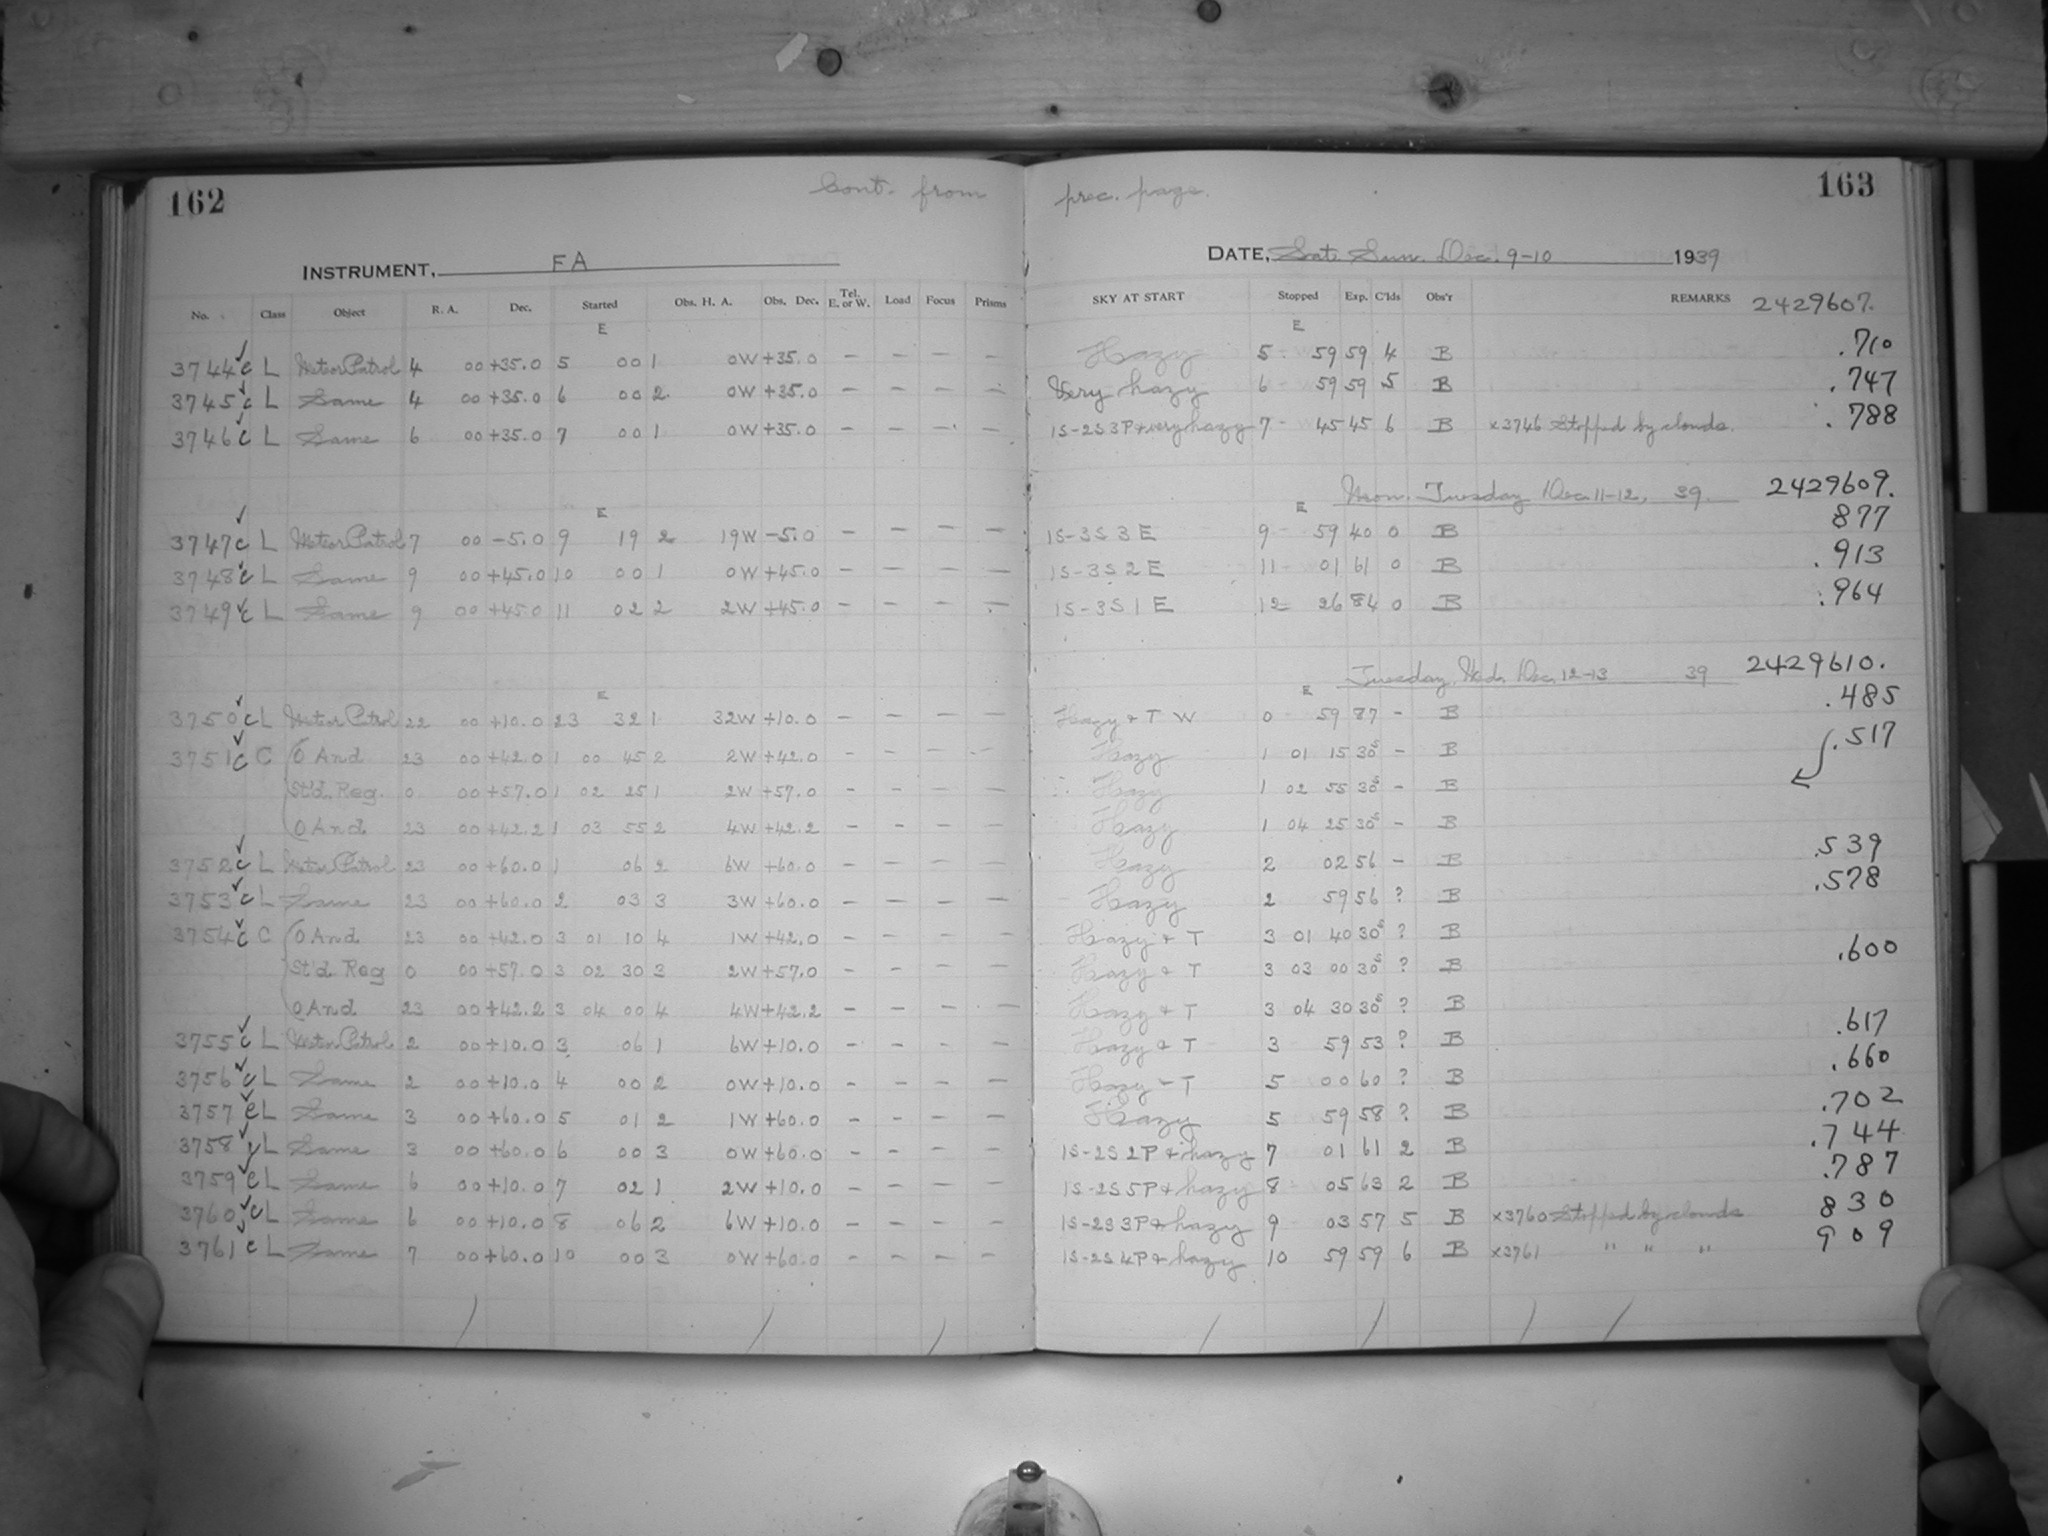 162 Cont. from prec. page. 163
INSTRUMENT, FA DATE, Sat. Sun. Dec. 9-10 1939
No. Class Object R. A. Dec. Started Obs. H. A. Obs. Dec. Tel. E. or W. Load Focus Prisms SKY AT START Stopped Exp. C'lds Obs'r REMARKS 2429607.
E E
3744 c L Meteor Patrol 4 00 +35.0 5 00 1 0W +35.0 – – – – Hazy 5 59 59 4 B .710
3745 c L Same 4 00 +35.0 6 00 2 0W +35.0 – – – – Very hazy 6 59 59 5 B .747
3746 c L Same 6 00 +35.0 7 00 1 0W +35.0 – – – – 1S-2S3P+very hazy 7 45 45 6 B x3746 Stopped by clouds. .788
Mon. Tuesday Dec. 11-12, 39. 2429609.
E E
3747 c L Meteor Patrol 7 00 -5.0 9 19 2 19W -5.0 – – – – 1S-3S3E 9 59 40 0 B 877
3748 c L Same 9 00 +45.0 10 00 1 0W +45.0 – – – – 1S-3S2E 11 01 61 0 B .913
3749 c L Same 9 00 +45.0 11 02 2 2W +45.0 – – – – 1S-3S1E 12 26 84 0 B .964
Tuesday, Wed. Dec. 12-13 39 2429610.
E E
3750 c L Meteor Patrol 22 00 +10.0 23 32 1 32W +10.0 – – – – Hazy + T W 0 59 87 – B .485
3751 c C O And 23 00 +42.0 1 00 45 2 2W +42.0 – – – – Hazy 1 01 15 30s – B .517
St'd. Reg. 0 00 +57.0 1 02 25 1 2W +57.0 – – – – Hazy 1 02 55 30s – B
O And 23 00 +42.2 1 03 55 2 4W +42.2 – – – – Hazy 1 04 25 30s – B
3752 c L Meteor Patrol 23 00 +60.0 1 06 2 6W +60.0 – – – – Hazy 2 02 56 – B .539
3753 c L Same 23 00 +60.0 2 03 3 3W +60.0 – – – – Hazy 2 59 56 ? B .578
3754 c C O And 23 00 +42.0 3 01 10 4 1W +42.0 – – – – Hazy + T 3 01 40 30s ? B
St'd Reg 0 00 +57.0 3 02 30 3 2W +57.0 – – – – Hazy + T 3 03 00 30s ? B .600
O And 23 00 +42.2 3 04 00 4 4W +42.2 – – – – Hazy + T 3 04 30 30s ? B
3755 c L Meteor Patrol 2 00 +10.0 3 06 1 6W +10.0 – – – – Hazy + T 3 59 53 ? B .617
3756 c L Same 2 00 +10.0 4 00 2 0W +10.0 – – – – Hazy - T 5 00 60 ? B .660
3757 c L Same 3 00 +60.0 5 01 2 1W +60.0 – – – – Hazy 5 59 58 ? B .702
3758 c L Same 3 00 +60.0 6 00 3 0W +60.0 – – – – 1S-2S2P+hazy 7 01 61 2 B .744
3759 c L Same 6 00 +10.0 7 02 1 2W +10.0 – – – – 1S-2S5P+hazy 8 05 63 2 B .787
3760 c L Same 6 00 +10.0 8 06 2 6W +10.0 – – – – 1S-2S3P+hazy 9 03 57 5 B x3760 Stopped by clouds 830
3761 c L Same 7 00 +60.0 10 00 3 0W +60.0 – – – – 1S-2S4P+hazy 10 59 59 6 B x3761 " " " 909